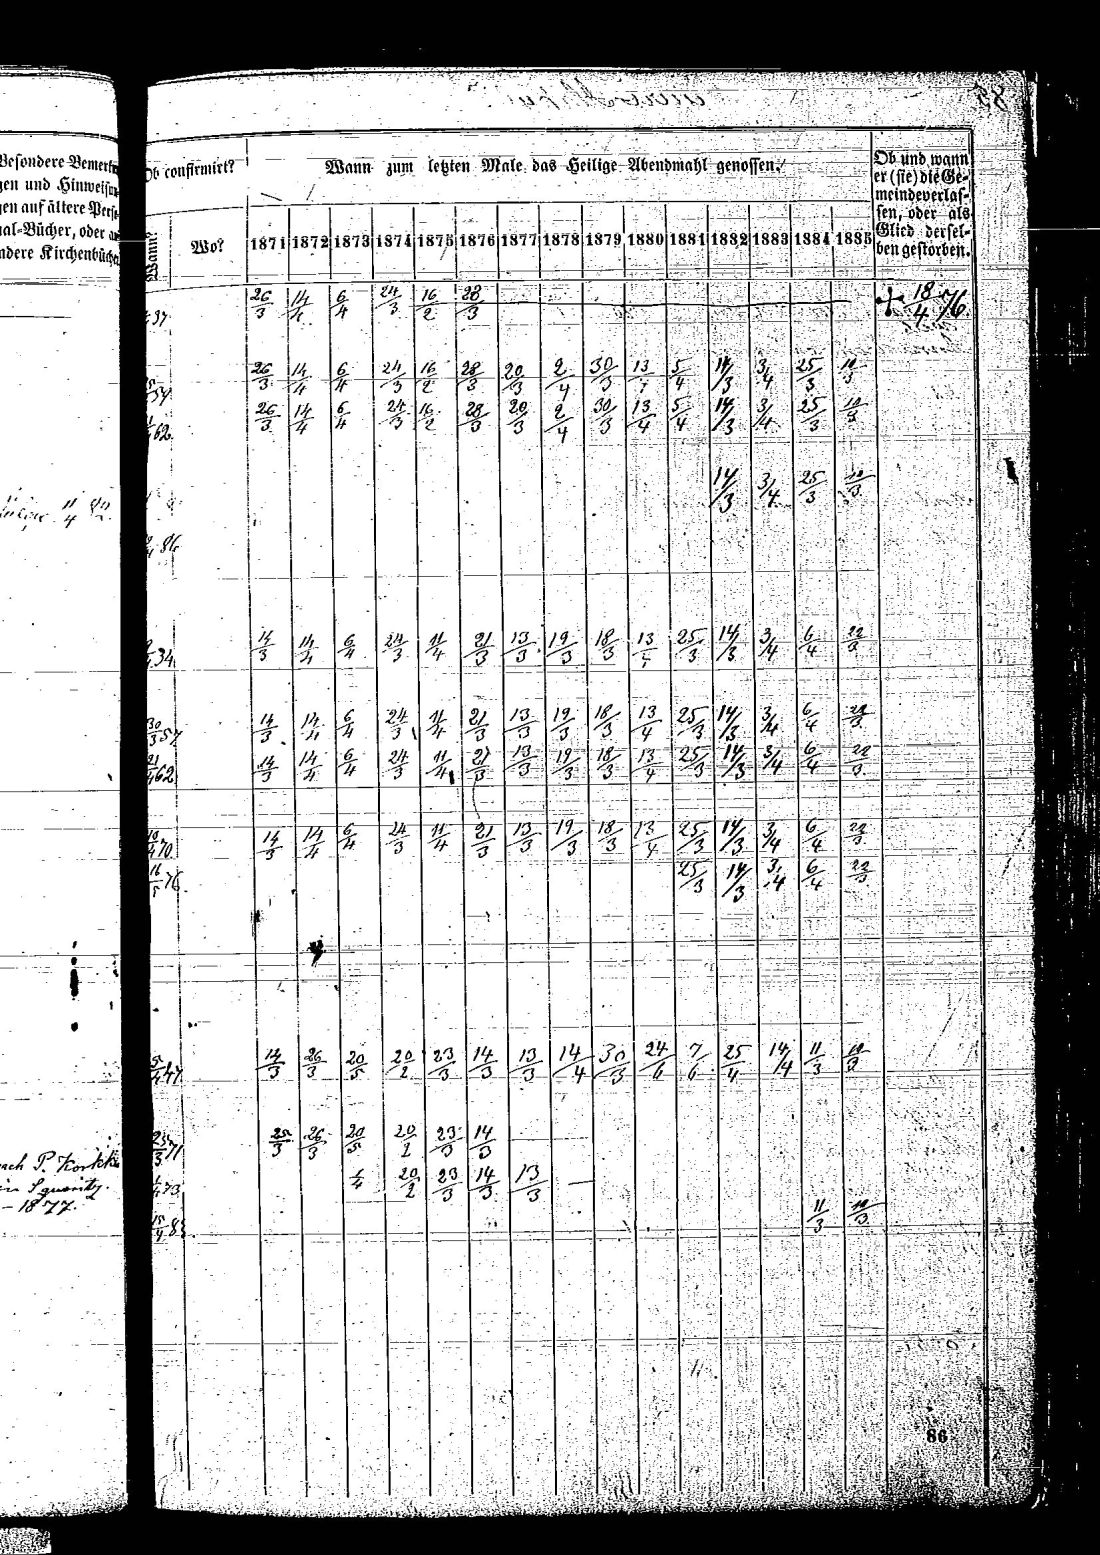 Besondere Bemerkun
gen und Hinweisun
gen auf ältere Perso
nal-Bücher, oder an
andere Kirchenbücher
Ob confirmirt?
Wann zum letzten Male das Heilige Abendmahl genossen.
Ob und wann
er (sie) die Ge-
meindeverlas-
sen, oder als
Glied dersel-
ben gestorben.
Wann?
Wo?
1871 1872 1873 1874 1875 1876 1877 1878 1879 1880 1881 1882 1883 1884 1885
37 26/3 14/4 6/4 24/3 16/2 28/3 † 18/4 76.
54 26/3 14/4 6/4 24/3 16/2 28/3 20/3 2/4 30/3 13/4 5/4 14/3 3/4 25/3 10/3
62 26/3 14/4 6/4 24/3 16/2 28/3 20/3 2/4 30/3 13/4 5/4 14/3 3/4 25/3 10/3
11/4 82. 14/3 3/4 25/3 10/3
86
34 14/3 14/4 6/4 24/3 11/4 21/3 13/3 19/3 18/3 13/4 25/3 14/3 3/4 6/4 22/3
30/3 57 14/3 14/4 6/4 24/3 11/4 21/3 13/3 19/3 18/3 13/4 25/3 14/3 3/4 6/4 22/3
21/4 62 14/3 14/4 6/4 24/3 11/4 21/3 13/3 19/3 18/3 13/4 25/3 14/3 3/4 6/4 22/3
10/4 70 14/3 14/4 6/4 24/3 11/4 21/3 13/3 19/3 18/3 13/4 25/3 14/3 3/4 6/4 22/3
16/5 76 25/3 14/3 3/4 6/4 22/3
47 14/3 26/3 20/5 20/2 23/3 14/3 13/3 14/4 30/3 24/6 7/6 25/4 14/4 11/3 10/3
25/3 71 25/3 26/3 20/5 20/2 23/3 14/3
nach P. Korkk
73 1/4 20/2 23/3 14/3 13/3 —
in Sgueritz
– 1877.
15/4 83. 11/3 10/3
86